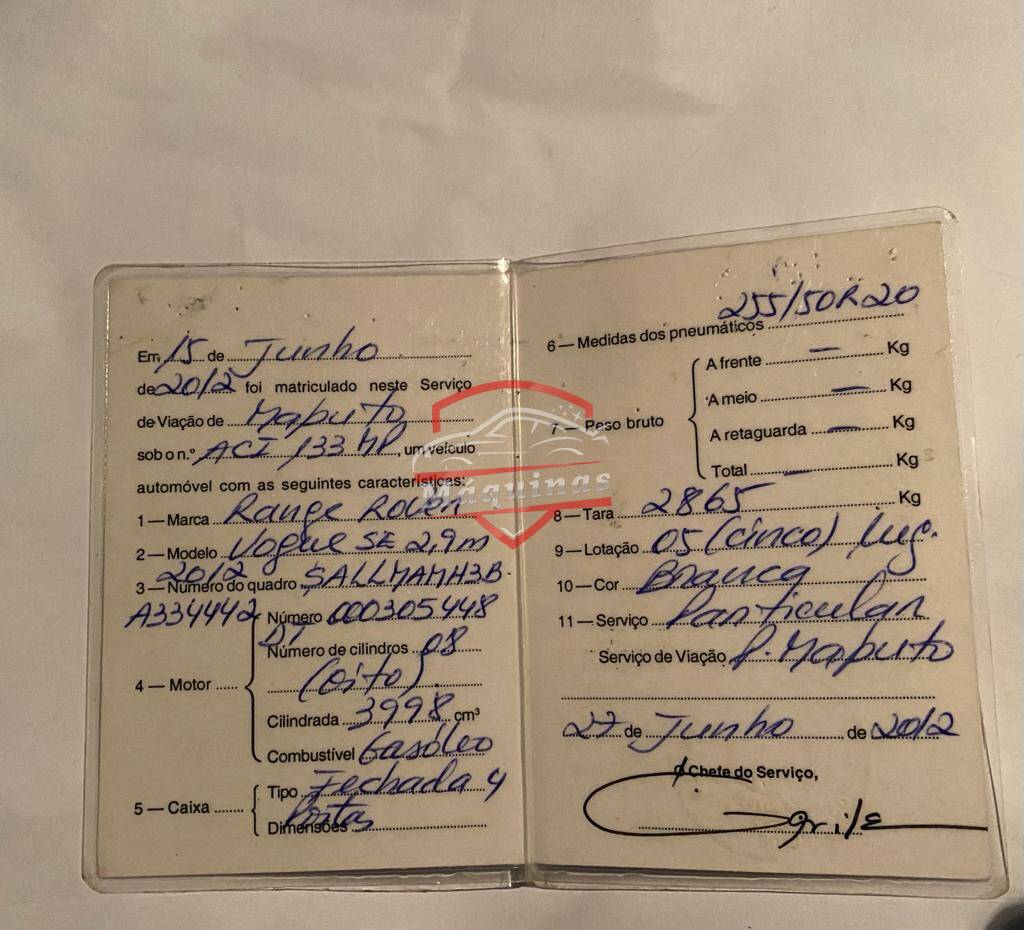 Em 15 de Junho
de 2012 foi matriculado neste Serviço
de Viação de Maputo
sob o n.º ACI 133 MP, um veículo
automóvel com as seguintes características:
1 — Marca Range Rover
2 — Modelo Vogue SE 2,9m
2012
3 — Número do quadro SALLMAMH3B
A334442
4 — Motor
Número 000305448
DT
Número de cilindros 08
(oito)
Cilindrada 3998 cm³
Combustível Gasóleo
5 — Caixa
Tipo Fechada 4
Portas
Dimensões
255/50R20
6 — Medidas dos pneumáticos
7 — Peso bruto
A frente — Kg
A meio — Kg
A retaguarda — Kg
Total — Kg
8 — Tara 2865 Kg
9 — Lotação 05 (cinco) lug.
10 — Cor Branca
11 — Serviço Particular
Serviço de Viação P. Maputo
27 de Junho de 2012
O Chefe do Serviço,
Máquinas